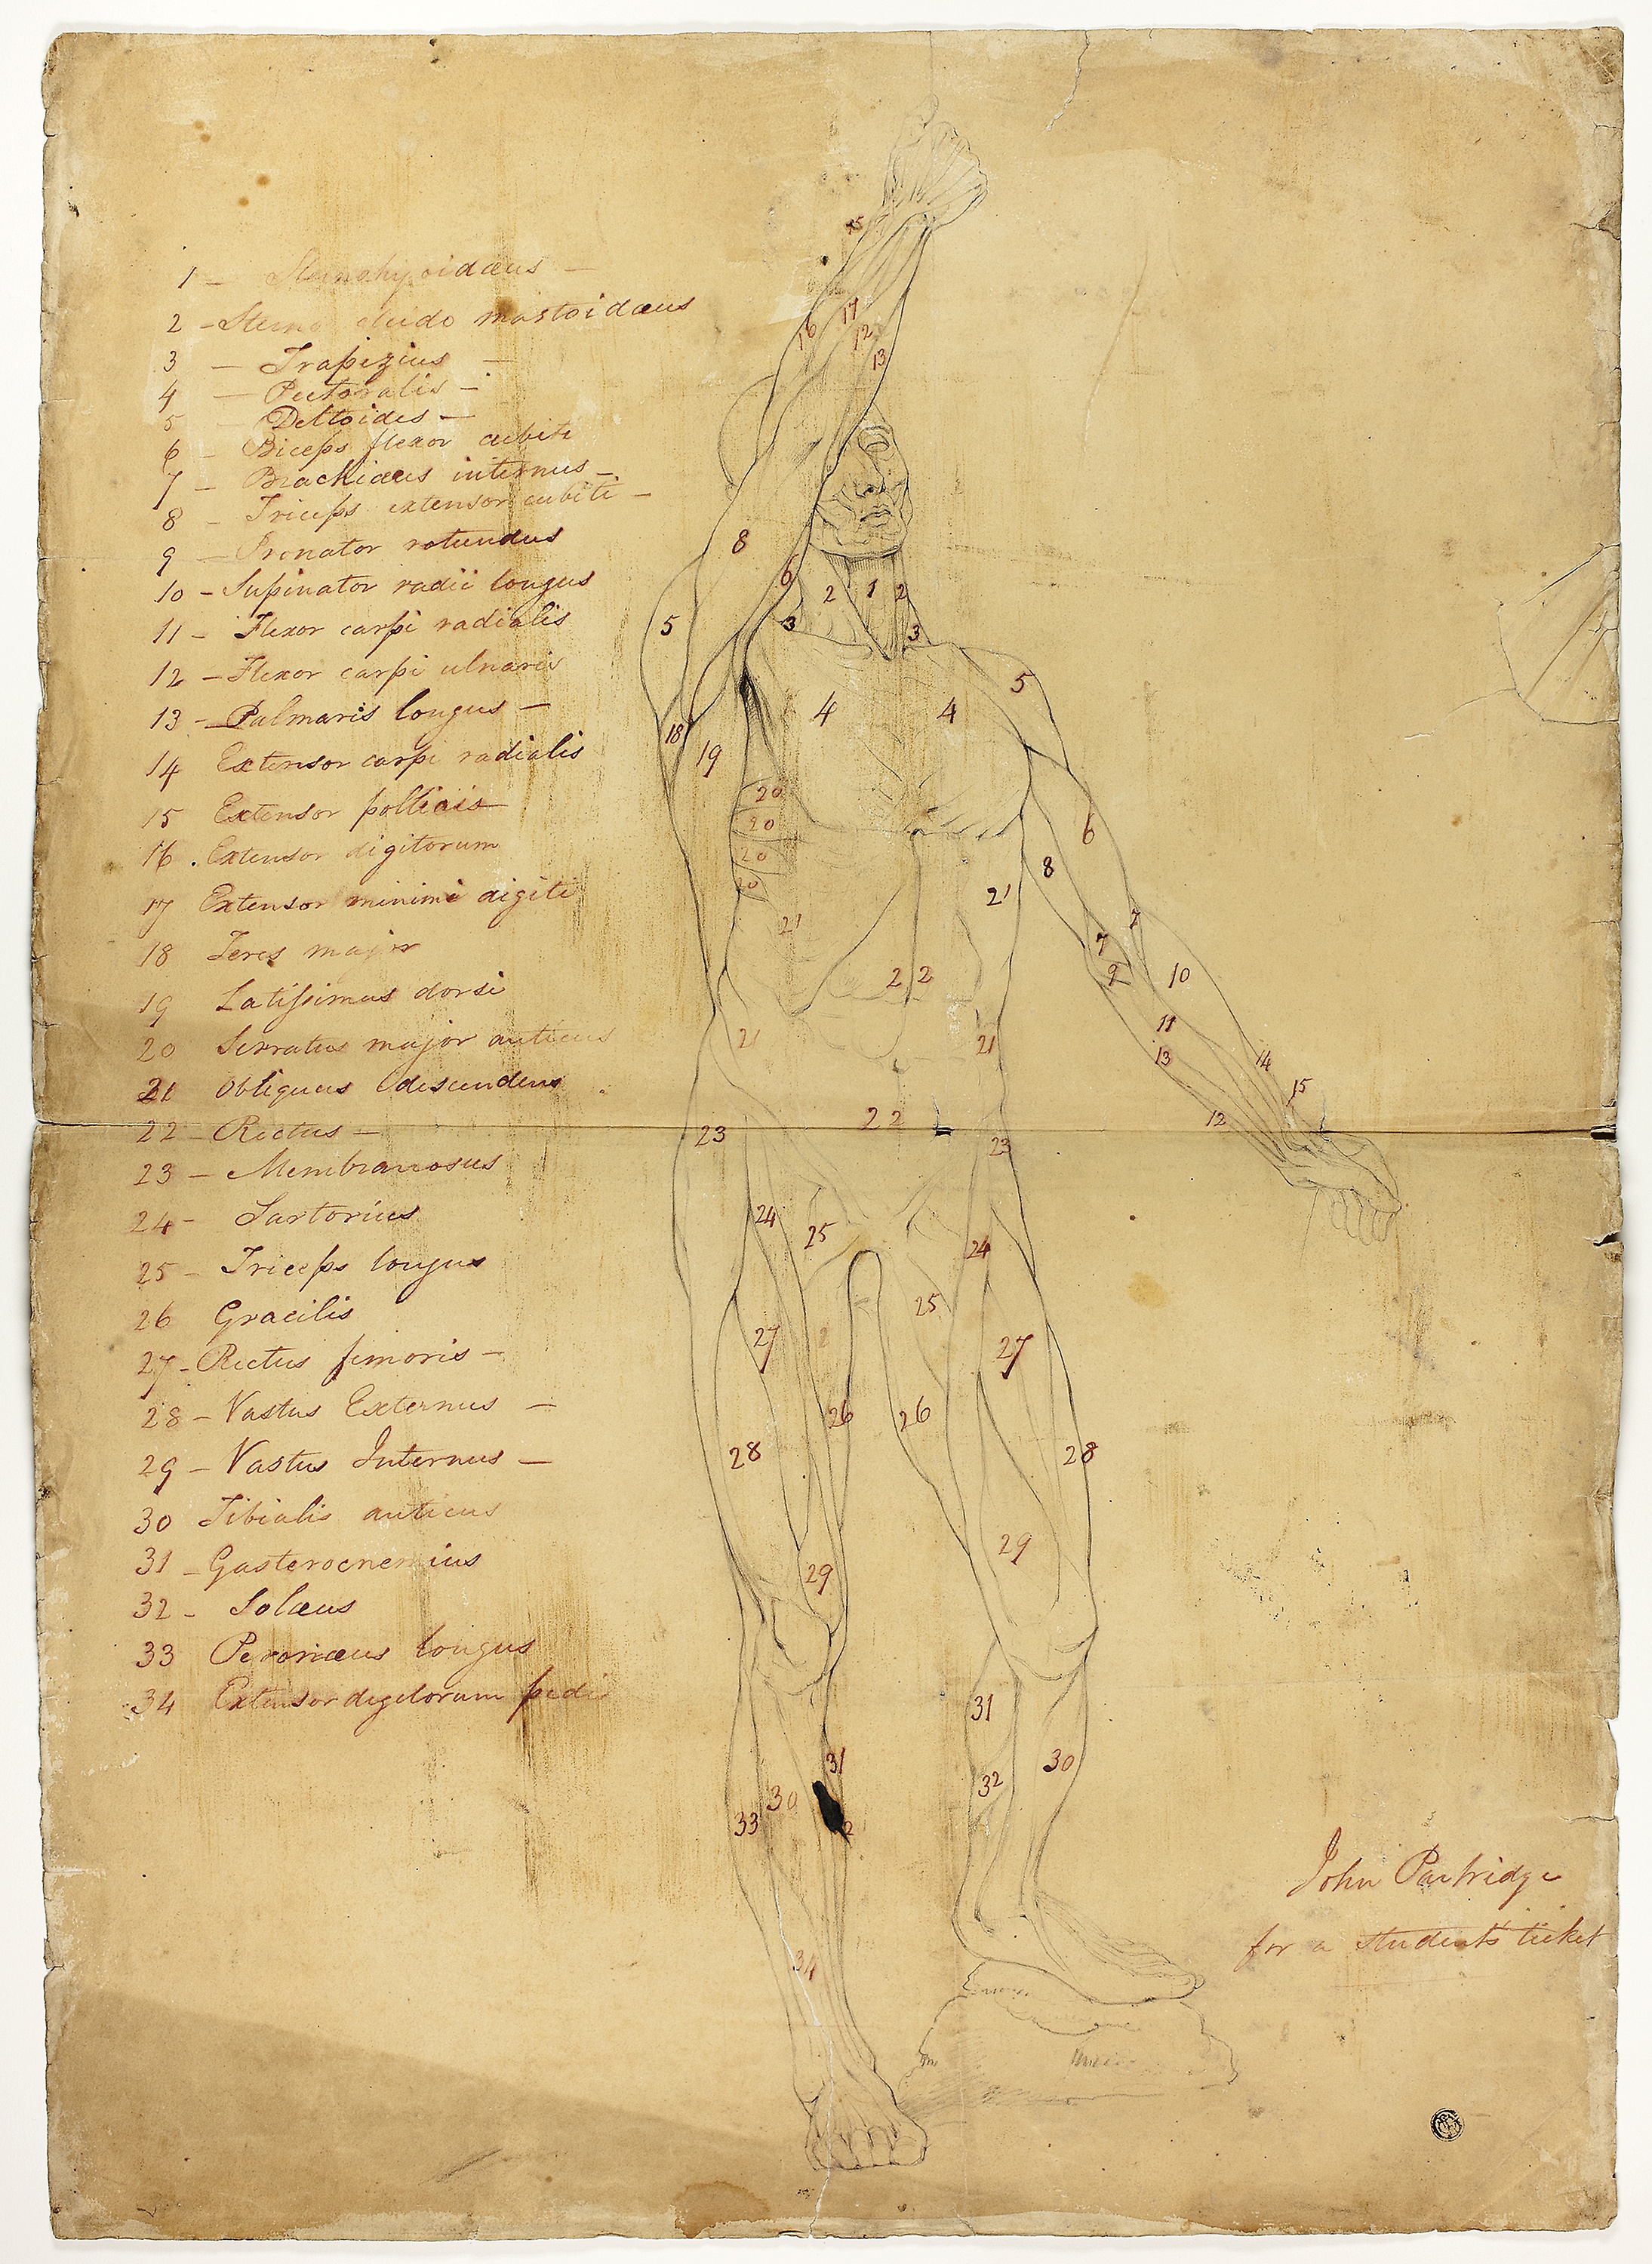 1 – Sternohyoidæus –
2 – Sterno cleido mastoidæus
3 – Trapezius –
4 – Pectoralis –
5 Deltoides –
6 – Biceps flexor cubiti
7 – Brachiæus internus –
8 – Triceps extensor cubiti –
9 – Pronator rotundus
10 – Supinator radii longus
11 – Flexor carpi radialis
12 – Flexor carpi ulnaris
13 – Palmaris longus –
14 Extensor carpi radialis
15 Extensor pollicis
16 . Extensor digitorum
17 Extensor minimi digiti
18 Teres major
19 Latissimus dorsi
20 Serratus major anticus
21 Obliquus descendens
22 – Rectus –
23 – Membranosus
24 – Sartorius
25 – Triceps longus
26 Gracilis
27 – Rectus femoris –
28 – Vastus Externus –
29 – Vastus Internus –
30 Tibialis anticus
31 – Gasterocnemius
32 – Solæus
33 Peronæus longus
34 Extensor digitorum pedis
15
17
16 12
13
8
6 2 1 2
5 3 3
5
4 4
18 19
20
20 6
20 8
20 21
21 7
7
22 9 10
11
21 21 13 14
15
22 12
23 23
24 25 24
25
27 2 27
26 26
28 28
29
29
31
31 30
30 32
33 2
34
John Partridge
for a students ticket